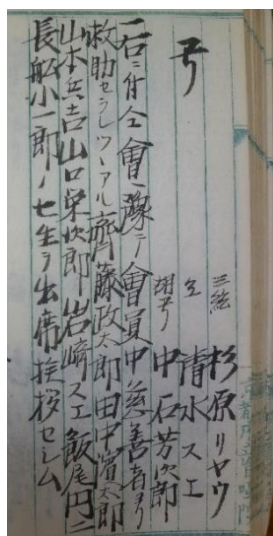 弓
三絃 杉原リヤウ
仝 清水スエ
胡弓 中石芳次郎
一右ニ付仝會豫テノ會員中慈善者ヨリ
救助セラレツヽアル齊藤政太郎田中濱太郎
山本兵吉山口栄次郎岩崎スエ飯尾円二
長船小一郎ノ七生ヲ出席挨拶セシム